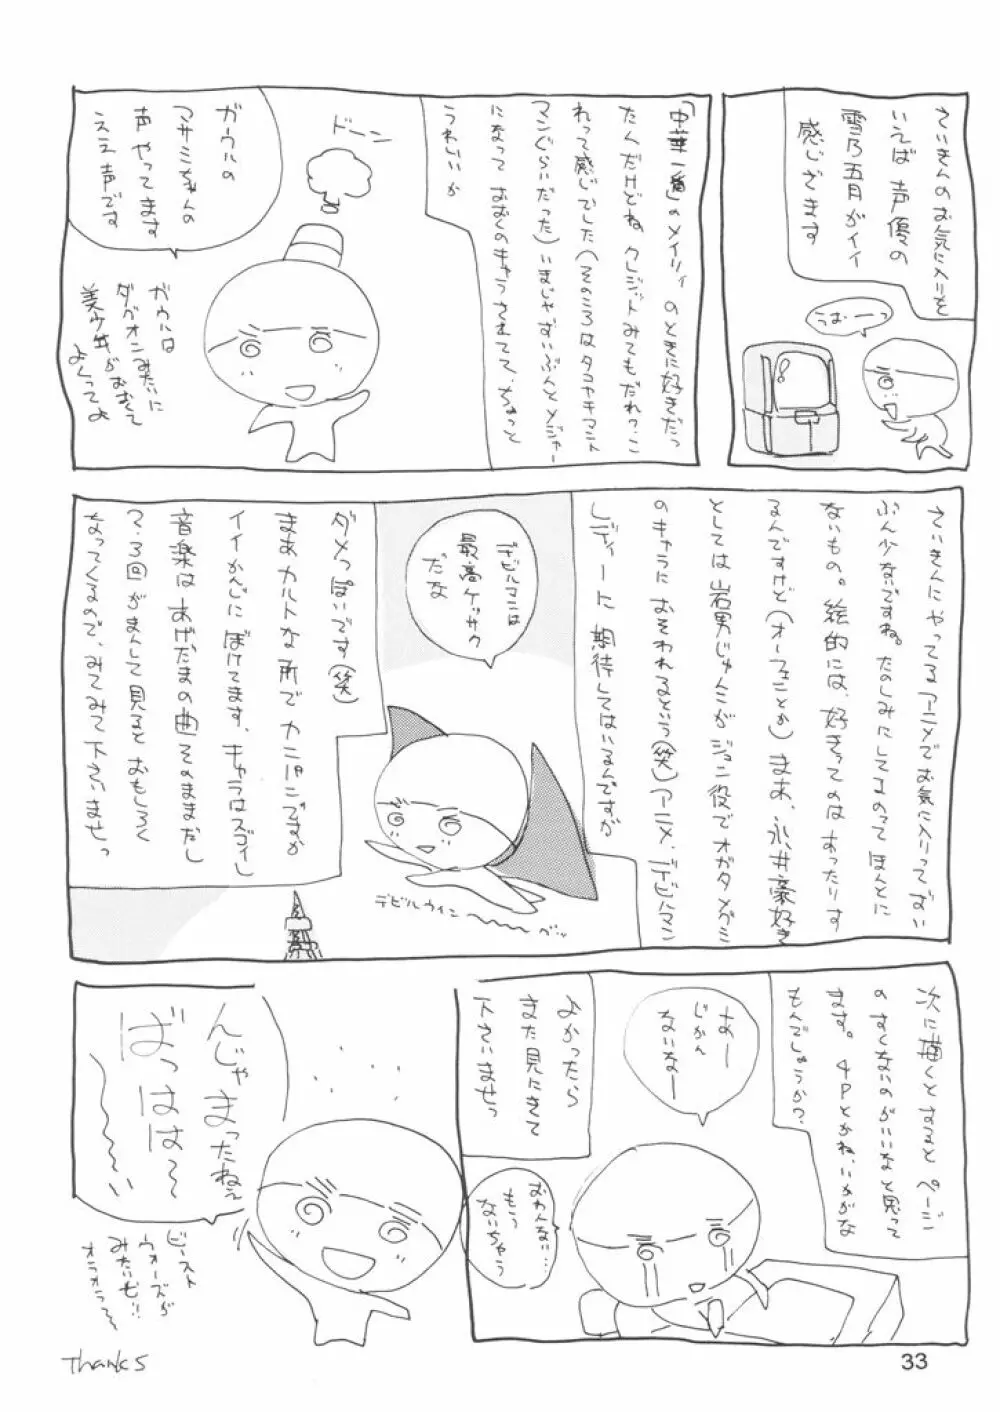 さいきんのお気に入りを
いえば 声優の
雪乃五月がイイ
感じざます
うお…っ
「中華一番」のメイリィ のときに好きだっ
たんだけどね クレジットみてもだれ?こ
れって感じでした(そのころはタコヤキマント
マンぐらいだった)いまじゃずいぶんとメジャー
になって おおくのキャラ されてて、ちょっと
うれしいか
ドーン
ガウルの
マサミちゃんの
声やってます
ええ声です
ガウルは
ダグオンみたいに
美少年がおおくて
よくってよ
さいきんにやってるアニメでお気に入りってずい
ぶん少ないですね。たのしみにしてるのって ほんとに
ないもの。絵的には、好きってのは あったりす
るんですけど(オーフェンとか)まあ、永井豪好き
としては 岩男じゅんこが ジュン役で オガタメグミ
のキャラに おそわれるという(笑)アニメ、デビルマン
レディーに 期待してはいるんですが
デビルマンは
最高ケッサク
だな
デビルウイン
ベッ
ダメっぽいです(笑)
まあ カルトな所で カニパンですか
イイかんじに ぼけてます、キャラはスゴイし
音楽は あげだまの曲 そのままだし
2・3回がまんして見ると おもしろく
なってくるので、みてみて下さいませっ
次に描くとすると ページ
のすくないのがいいなと思って
ます。4Pとかね、いかがな
もんでしょうか?
あー
じかん
ないなー
よかったら
また見にきて
下さいませっ
おわんない…
もう
ないちゃう
んじゃまったねぇ
ばっはは〜
〜い
ビースト
ウォーズが
みたいぜ!!
オラオラ〜
Thanks
33